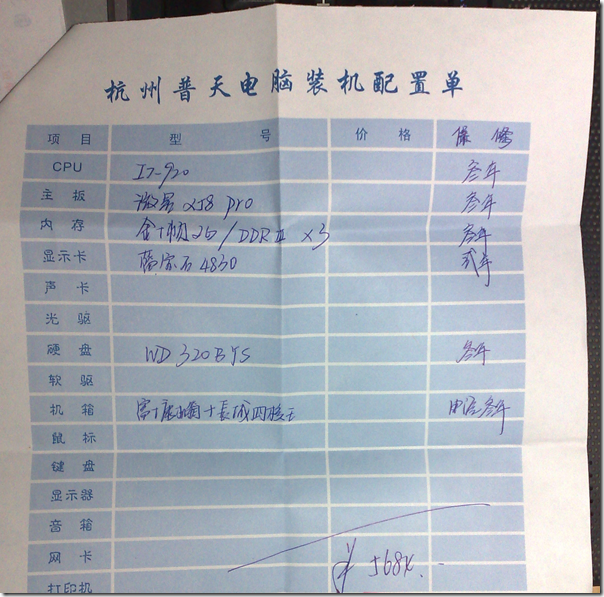 杭州普天电脑装机配置单
项 目 型 号 价 格 保 修
CPU I7-920 叁年
主 板 微星 X58 pro 叁年
内 存 金士顿 2G / DDRIII X3 叁年
显示卡 蓝宝石 4830 贰年
声 卡
光 驱
硬 盘 WD 320 BJS 叁年
软 驱
机 箱 富士康 + 长城四核王 电源叁年
鼠 标
键 盘
显示器
音 箱
网 卡 ¥ 568
打印机